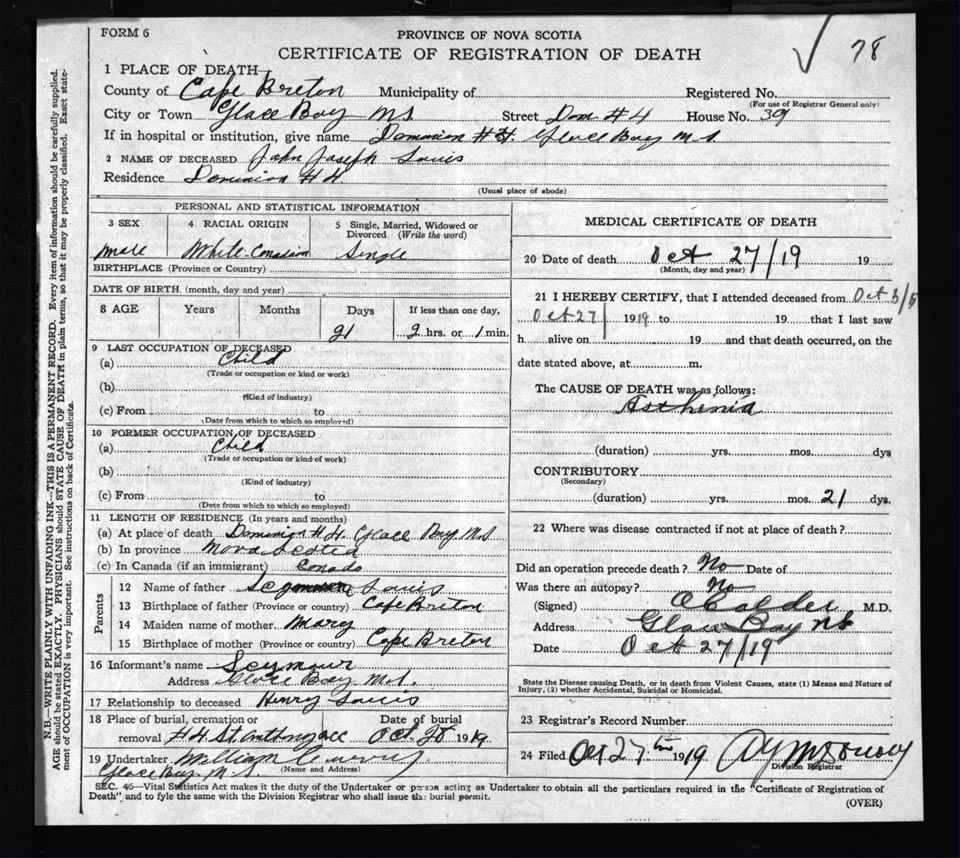 FORM 6
PROVINCE OF NOVA SCOTIA
78
CERTIFICATE OF REGISTRATION OF DEATH
1 PLACE OF DEATH
County of Cape Breton Municipality of Registered No.
(For use of Registrar General only)
City or Town Glace Bay N S Street Dom # 4 House No. 309
If in hospital or institution, give name Dominion # 4. Glace Bay N.S.
2 NAME OF DECEASED John Joseph Louis
Residence Dominion # 4.
(Usual place of abode)
PERSONAL AND STATISTICAL INFORMATION
3 SEX 4 RACIAL ORIGIN 5 Single, Married, Widowed or
Divorced (Write the word)
male White Canadian Single
BIRTHPLACE (Province or Country)
DATE OF BIRTH (month, day and year)
8 AGE Years Months Days If less than one day,
21 2 hrs. or 1 min.
9 LAST OCCUPATION OF DECEASED
(a) Child
(Trade or occupation or kind or work)
(b)
(Kind of industry)
(c) From to
(Date from which to which so employed)
10 FORMER OCCUPATION OF DECEASED
(a) Child
(Trade or occupation or kind of work)
(b)
(Kind of industry)
(c) From to
(Date from which to which so employed)
11 LENGTH OF RESIDENCE (In years and months)
(a) At place of death Dominion # 4. Glace Bay N S
(b) In province Nova Scotia
(c) In Canada (if an immigrant) Canada
Parents
12 Name of father Louis
13 Birthplace of father (Province or country) Cape Breton
14 Maiden name of mother Mary
15 Birthplace of mother (Province or country) Cape Breton
16 Informant's name Seymour
Address Glace Bay N.S.
17 Relationship to deceased Henry Louis
18 Place of burial, cremation or Date of burial
removal #4 St Oct 28 1919.
19 Undertaker William
(Name and Address)
Glace Bay. N.S.
MEDICAL CERTIFICATE OF DEATH
20 Date of death Oct 27/19 19
(Month, day and year)
21 I HEREBY CERTIFY, that I attended deceased from Oct
Oct 27/ 1919 to 19 that I last saw
h alive on 19 and that death occurred, on the
date stated above, at m.
The CAUSE OF DEATH was as follows:
Asthenia
(duration) yrs. mos. dys
CONTRIBUTORY
(Secondary)
(duration) yrs. mos. 21 dys.
22 Where was disease contracted if not at place of death?
Did an operation precede death? No Date of
Was there an autopsy? No
(Signed) M.D.
Address Glace Bay NS
Date Oct 27/19
State the Disease causing Death, or in death from Violent Causes, state (1) Means and Nature of
Injury, (2) whether Accidental, Suicidal or Homicidal.
23 Registrar's Record Number
24 Filed Oct 27th 1919
Division Registrar
SEC. 46—Vital Statistics Act makes it the duty of the Undertaker or person acting as Undertaker to obtain all the particulars required in the "Certificate of Registration of
Death" and to fyle the same with the Division Registrar who shall issue the burial permit.
(OVER)
N.B.—WRITE PLAINLY WITH UNFADING INK—THIS IS A PERMANENT RECORD. Every item of information should be carefully supplied.
AGE should be stated EXACTLY. PHYSICIANS should STATE CAUSE OF DEATH in plain terms, so that it may be properly classified. Exact state-
ment of OCCUPATION is very important. See instructions on back of Certificate.